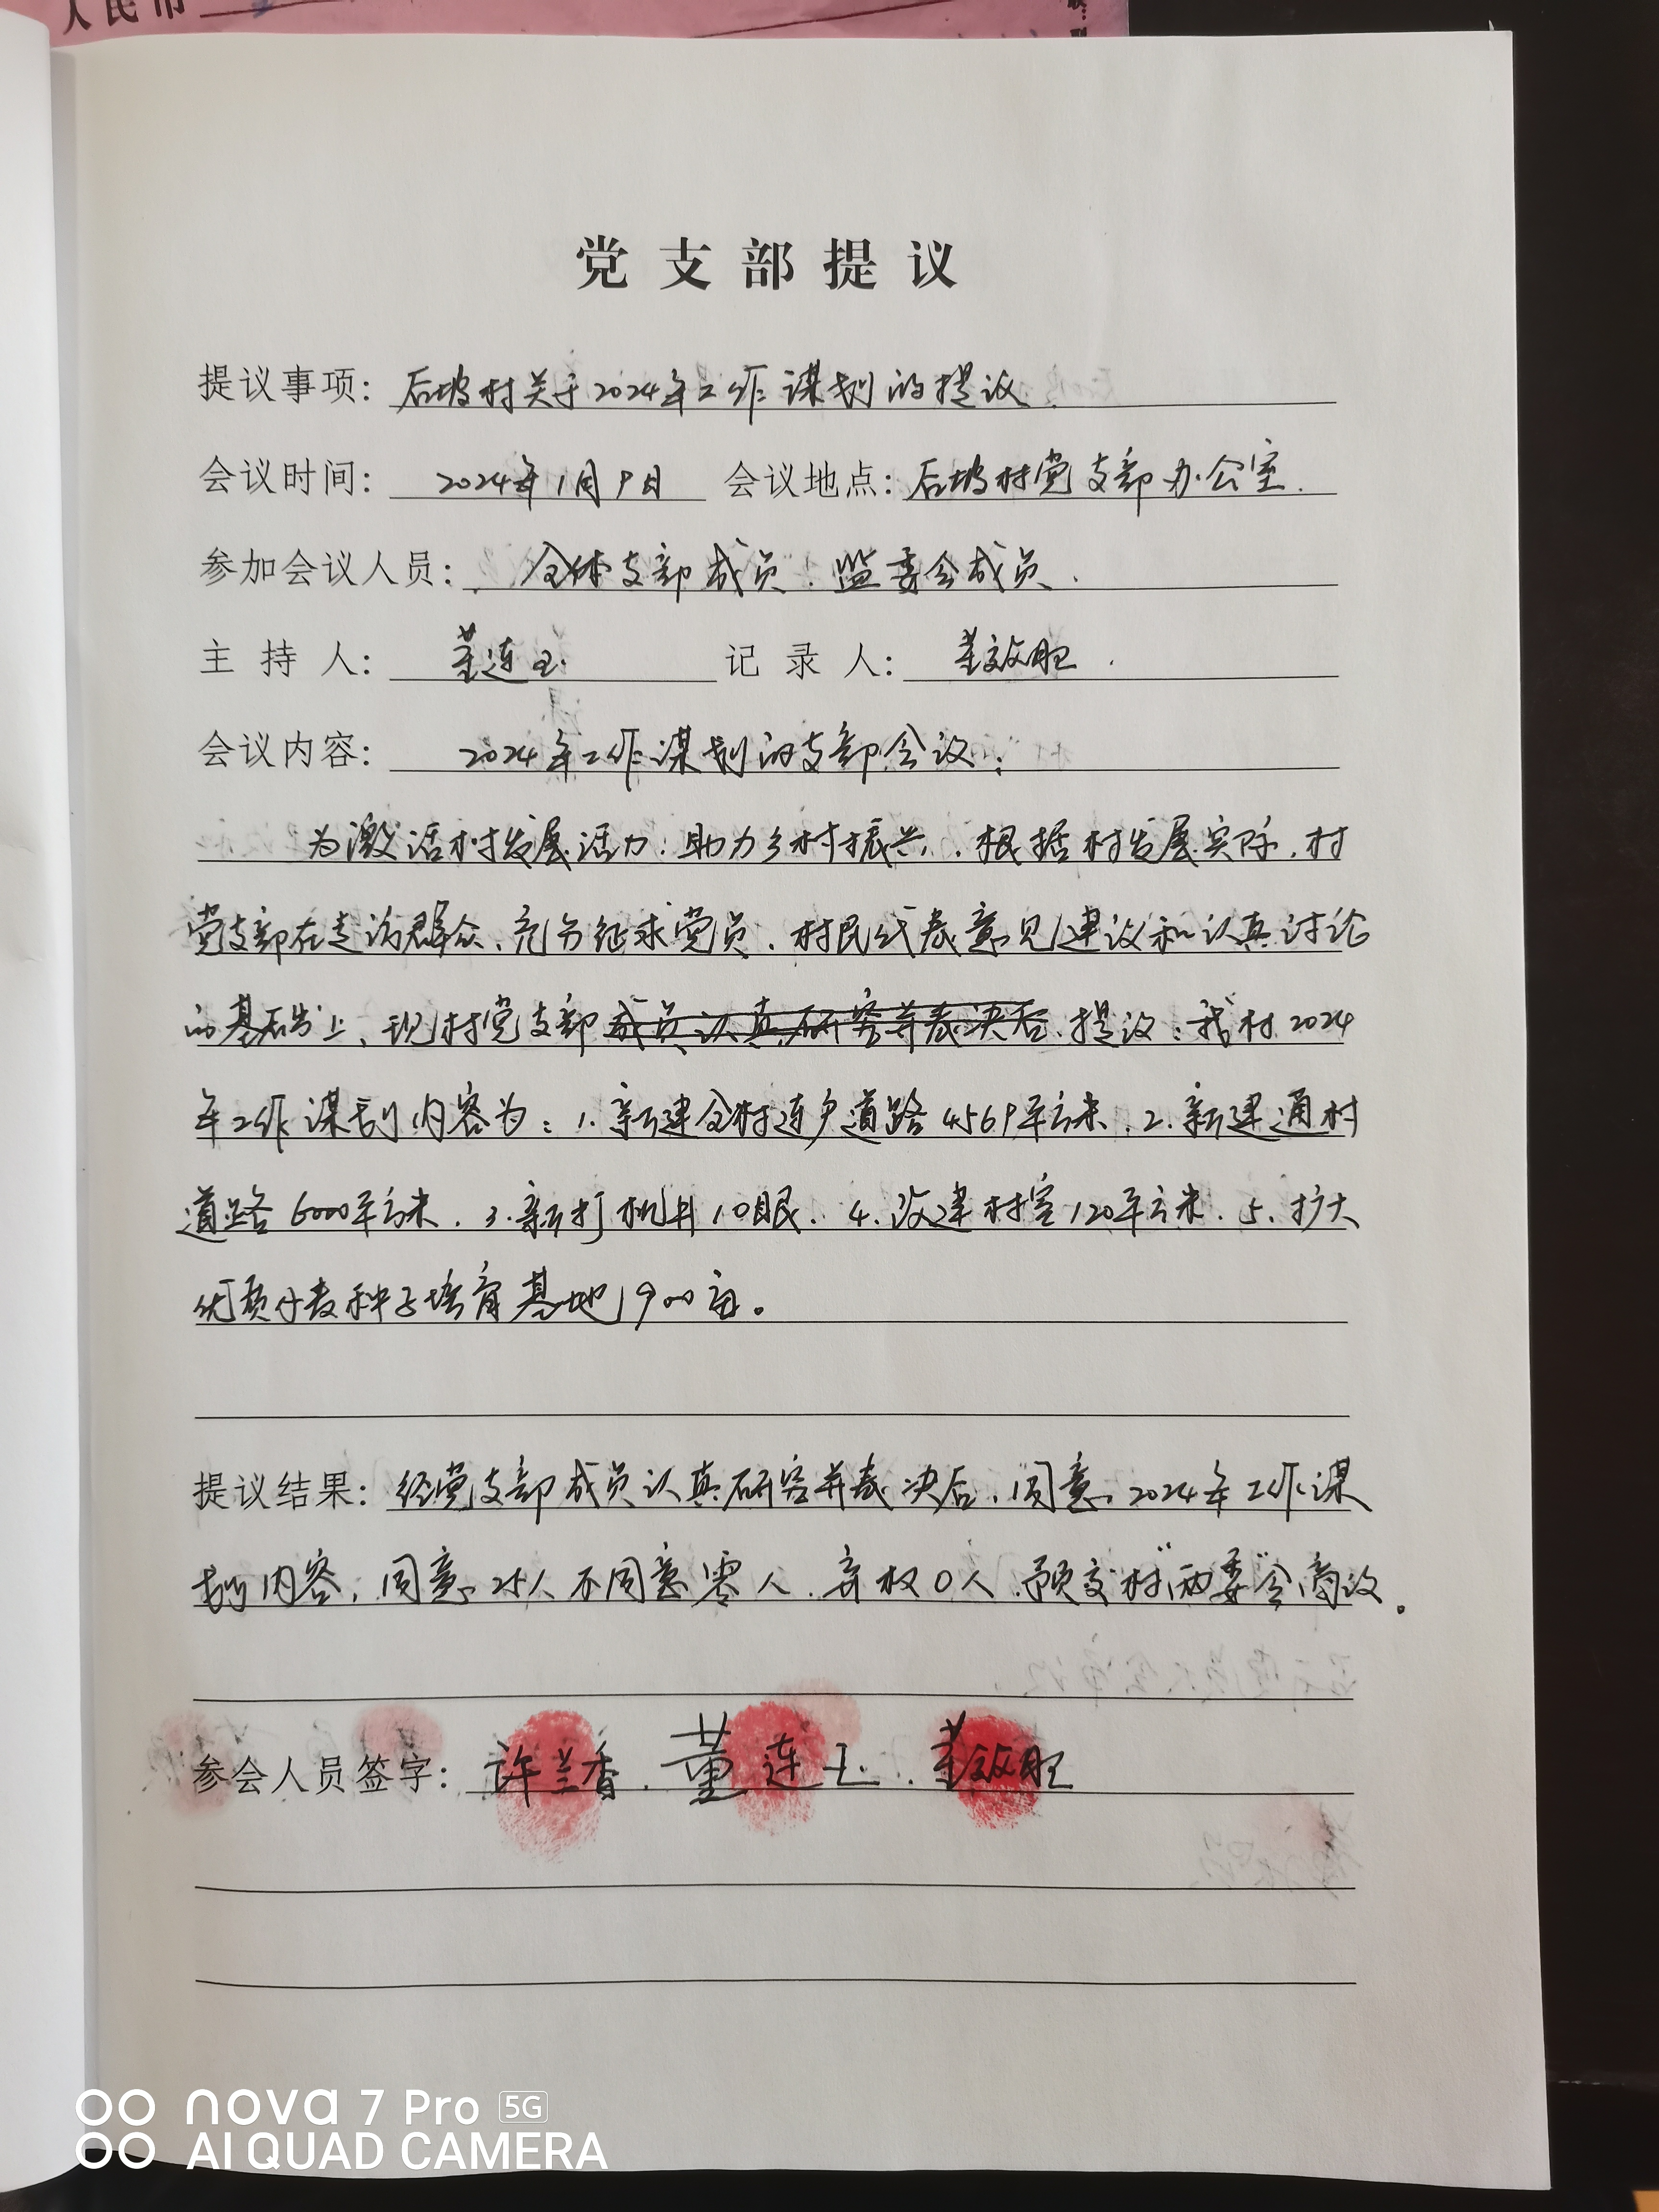 人民币
党支部提议
提议事项: 后坡村关于2024年工作谋划的提议.
会议时间: 2024年1月9日 会议地点: 后坡村党支部办公室.
参加会议人员: 全体支部成员. 监委会成员.
主持人: 董连玉. 记录人: 董敏
会议内容: 2024年工作谋划的支部会议:
为激活村发展活力. 助力乡村振兴. 根据村发展实际. 村
党支部在走访群众、充分征求党员. 村民代表意见建议和认真讨论
的基础上、现村党支部成员认真研究并表决后. 提议: 我村2024
年工作谋划内容为: 1. 新建全村连户道路4569平方米. 2. 新建通村
道路6000平方米. 3. 新打机井10眼. 4. 改建村室120平方米. 5. 扩大
优质小麦种子培育基地1900亩。
提议结果: 经党支部成员认真研究并表决后. 同意2024年工作谋
划内容, 同意25人 不同意零人. 弃权0人. 预交村“两委”会商议。
参会人员签字: 许兰香. 董连玉. 董敏
nova 7 Pro 5G
AI QUAD CAMERA